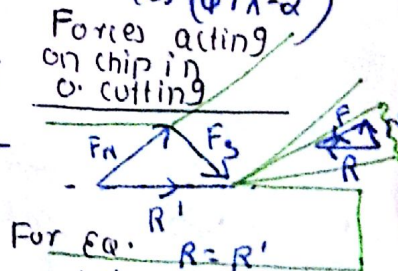 (φ+λ-α)
Forces acting
on chip in
o. cutting
FN
Fs
F
R
R'
For EQ. R = R'